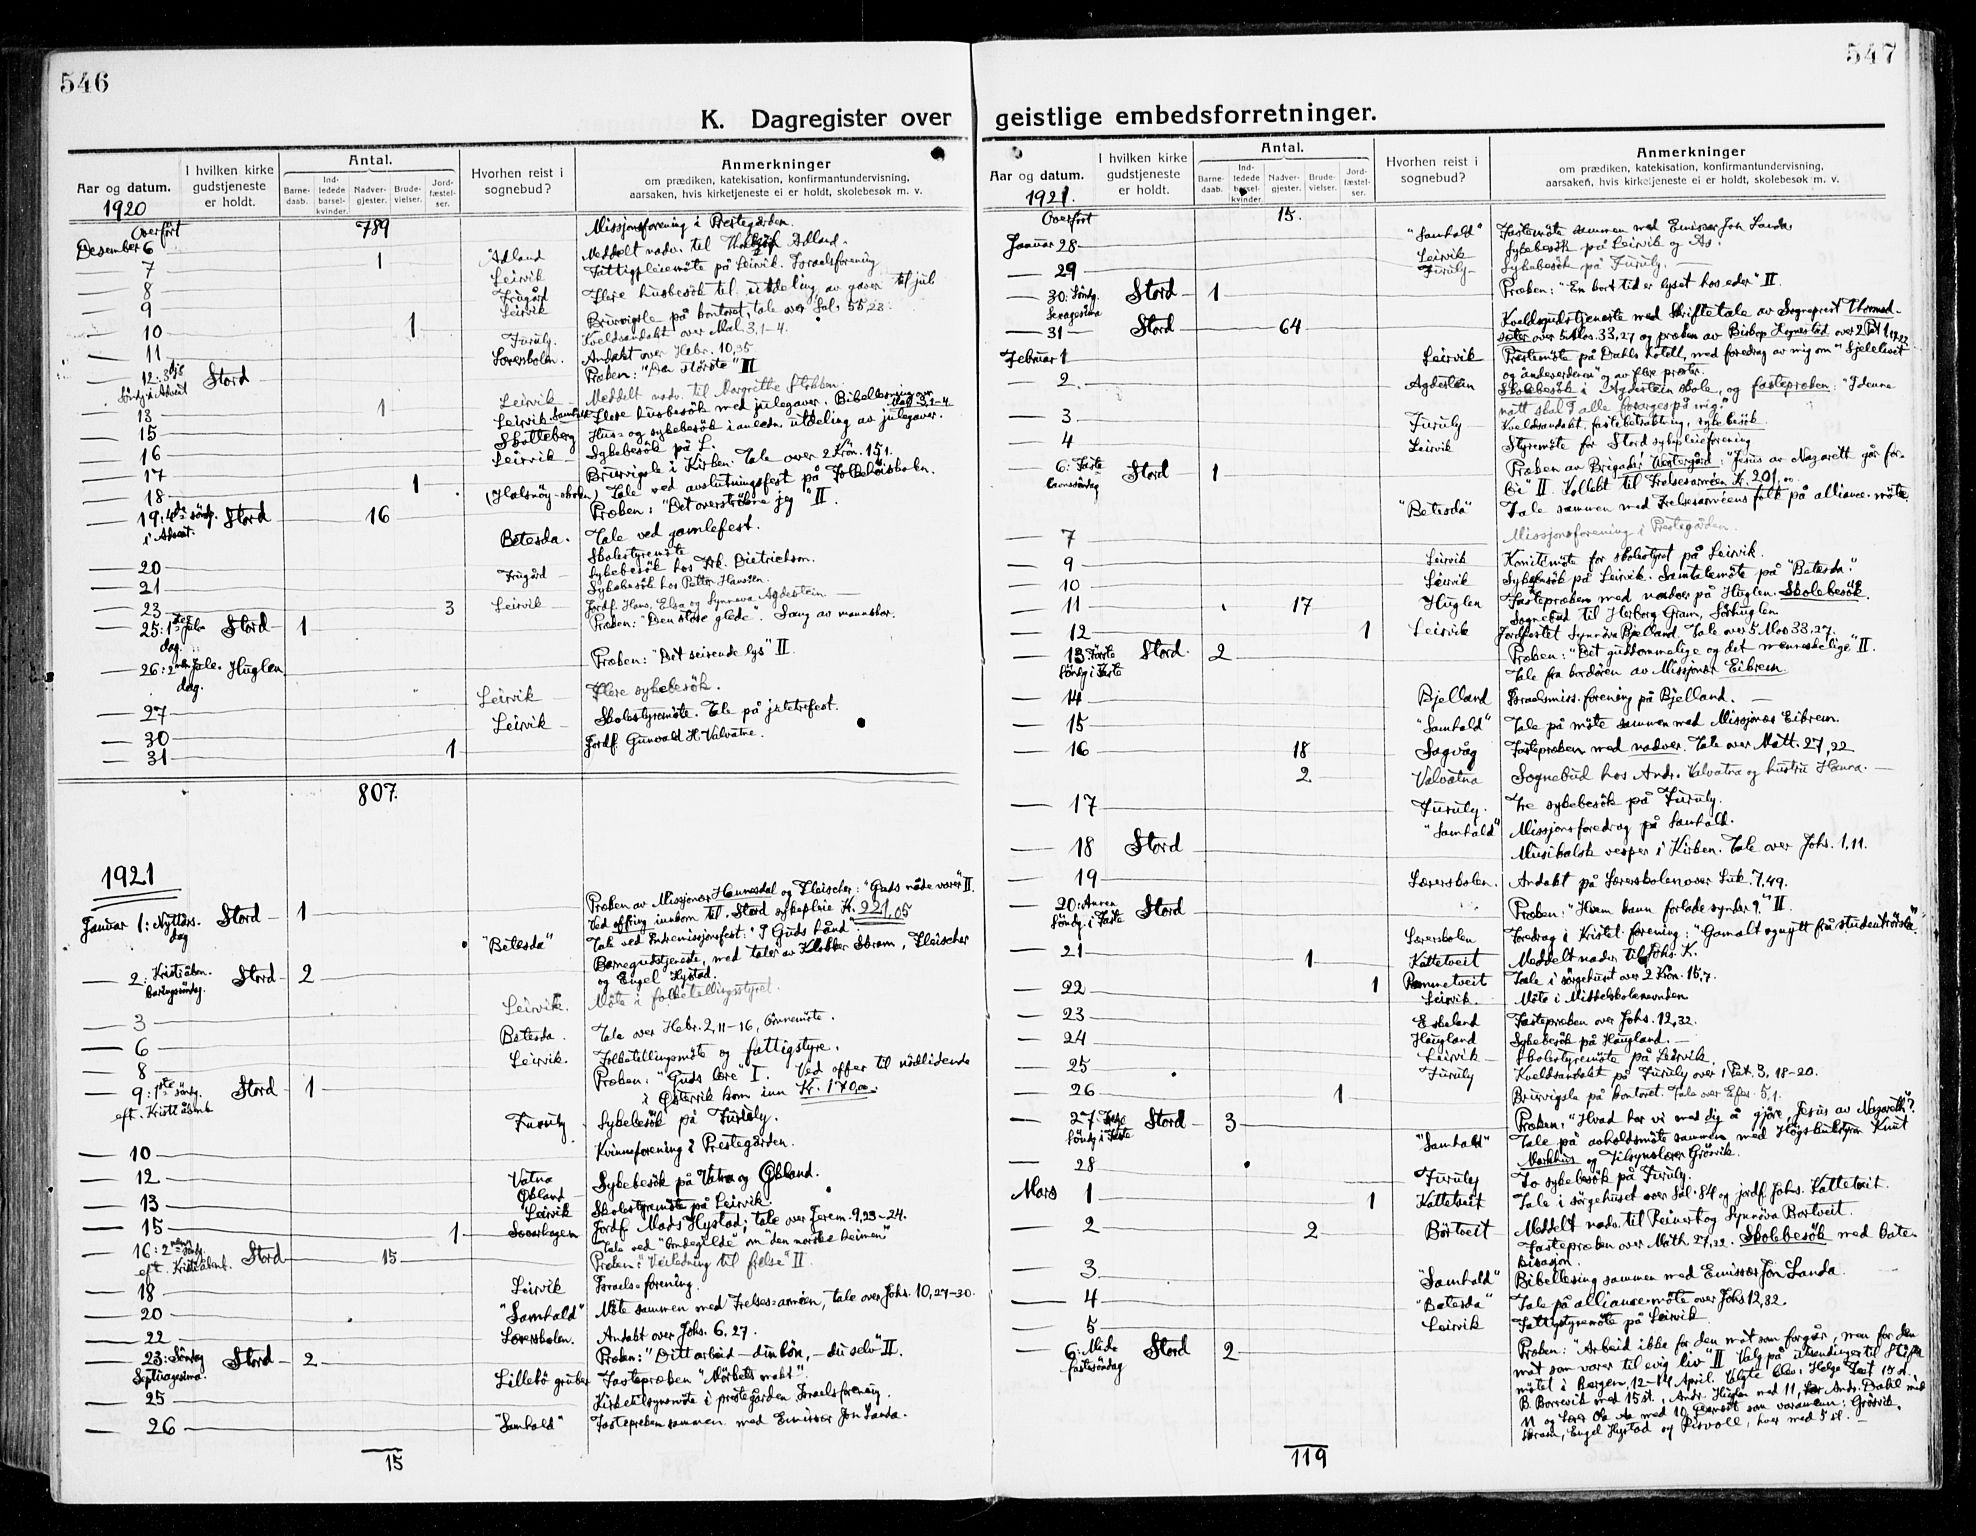 546
K. Dagregister over
Aar og datum.
I hvilken kirke gudstjeneste er holdt.
Antal.
Barne-daab.
Ind-ledede barsel-kvinder.
Nadver-gjester.
Brude-vielser.
Jord-fæstel-ser.
Hvorhen reist i sognebud?
Anmerkninger
om prædiken, katekisation, konfirmantundervisning,
aarsaken, hvis kirketjeneste ei er holdt, skolebesøk m. v.
1920
Overført 789 Missjonsforening i Prestegarden.
Desember 6 Adland Meddelt nadv. til Adland.
7 1 Leirvik Fattigpleiemöte på Leirvik. Israelsforening
8 Frugård Flere husbesök til utdeling av gaver til jul
9 Leirvik Bruvigsle på kontoret, tale over Sal. 55,23.
10 1 Furuly Kveldsandakt over Mal. 3,1-4.
11 Lærerskolen. Andakt over Hebr. 10,35
12: 3dje Söndg i Advent Stord Preken: "Den största" II
13 1 Leirvik Meddelt nadv. til Margrethe Stokken.
15 Leirvik. Samhald Flere husbesök med julegaver. Bibellesning over Mal. 3,1-4
16 Skotteberg Hus- og sykebesök i anledn. utdeling av julegaver.
17 Leirvik Sykebesök på L.
18 1 Bruvigsle i Kirken. Tale over 2 Krön. 15,1.
(Halsnöy-skolen) Tale ved avslutningsfest på Folkehöiskolen.
19: 4de sönd. i Advent. Stord 16 Preken: "Det overströmme jeg" II.
Betesda. Tale ved gamlefest.
20 Skolestyremöte
21 Frugård Sykebesök hos Frk. Dietrichson.
Sykebesök hos Petter Hansen.
23 3 Leirvik Jordf. Hans, Elsa og Synneva Agdestein.
25: 1ste Jule dag. Stord 1 Preken: "Den store glede". Sang av mannskor.
26: 2nen Jule. dag. Huglen Preken: "Det seirende lys" II.
27 Leirvik Flere sykebesök.
30 Leirvik Skolestyremöte. Tale på juletrefest.
31 1 Jordf. Gunvald H. Valvatne.
807.
1921
Januar 1: Nyttårs. dag Stord 1 Preken av Missjonær Hannesdal og Fleischer: "Guds nåde varer" II.
Ved offring innkom til Stord sykepleie Kr. 221,05
"Betesda" Tale ved Indremissjonsfest: "I Guds hånd"
2: Kristi åben. baringssöndg. Stord 2 Barnegudstjeneste, med taler av Klokker Strøm, Fleischer
og Engel Hystad.
3 Leirvik. Möte i folketellingsstyret.
6 Betesda. Tale over Hebr. 2,11-16, Önnemöte.
8 Leirvik. Folketellingsmöte og fattigstyre.
9: 1ste söndg. eft. Kristi åbenb. Stord 1 Preken: "Guds lære" I. Ved offer til nödlidende
i Østervik kom inn Kr. 170,00.
Furuly Sykebesök på Furuly.
10 Kvinneforening i Prestegården.
12 Vatna Økland Sykebesök på Vatna og Økland.
13 Leirvik Skolestyremöte på Leirvik.
15 1 Jordf. Mads Hystad; tale over Jerem. 9,23-24.
Tale ved "bondegilde" om "den norske heimen"
16: 2nen söndg. eft. Kristi åbenb. Stord 15 Preken: "Veiledning til frelse" II
18 Leirvik Israels-forening.
20 "Samhald" Möte sammen med Frelses-arméen, tale over Johs. 10,27-30.
22 Lærerskolen. Andakt over Johs. 6,27.
23: Söndag Septuagesima. Stord 2 Preken: "Ditt arbeid - din lön, - du selv" II.
Lillebö gruber Fastepreken "Mörkets makt".
25 Kirketilsynsmöte i prestegården. Israelsforening.
26 "Samhald" Fastepreken sammen med Emissær Jon Landa.
15
547
geistlige embedsforretninger.
Aar og datum.
I hvilken kirke gudstjeneste er holdt.
Antal.
Barne-daab.
Ind-ledede barsel-kvinder.
Nadver-gjester.
Brude-vielser.
Jord-fæstel-ser.
Hvorhen reist i sognebud?
Anmerkninger
om prædiken, katekisation, konfirmantundervisning,
aarsaken, hvis kirketjeneste ei er holdt, skolebesøk m. v.
1921.
Overført 15.
Januar 28 "Samhald" Fastemöte sammen med Emissær Jon Landa.
Leirvik Sykebesök på Leirvik og As.
29 Furuly Sykebesök på Furuly.
30: Söndg. Sexagesima Stord 1 Preken: "En kort tid er lyset hos eder" II.
31 Stord 64 Kveldsgudstjeneste med Skriftetale av Sogneprest Thormod-
sæter over 5 Mos. 33,27 og preken av Biskop Hognestad over 2 Pet 1,19,22
Februar 1 Leirvik Prestemöte på Dahls hotell, med foredrag av mig om "Sjelelivet
og åndeverdenen" og av flere prester.
2. Agdestein Skolebesök i Agdestein skole, og fastepreken: "I denne
natt skal I alle forarges på mig."
3 Furuly Kveldsandakt, fastebetraktning, sykebesök
4 Leirvik Styremöte for Stord sykepleieforening
6: Faste lavnssöndag Stord 1 Preken av Brigadér Westergård: "Jesus av Nazarett går for-
bi" II. Kollekt til Frelsesarméen Kr. 201,00
"Betesda" Tale sammen med Frelsesarméens folk på alliance-möte.
7 Missjonsforening i Prestegården.
9 Leirvik Komitémöte for skolestyret på Leirvik.
10 Leirvik Sykebesök på Leirvik. Samtalemöte på "Betesda".
11 17 Huglen Fastepreken med nadver på Huglen. Skolebesök.
Sognebud til Herborg Gram, Sörhuglen
12 1 Leirvik Jordfestet Synnöva Bjelland. Tale over 5 Mos 33,27.
13 Förste Söndg i Faste Stord. 2 Preken: "Det guddommelige og det menneskelige" II.
Tale fra kordören av Missjonær Eikrem.
14 Bjelland Israelsmiss. forening på Bjelland.
15 "Samhald" Tale på möte sammen med Missjonær Eikrem.
16 18 Sagvåg Fastepreken med nadver. Tale over Matt. 27,22
2 Valvatna Sognebud hos Andr. Valvatna og hustru Hanna.
17 Furuly. Tre sykebesök på Furuly.
"Samhald" Missjonsforedrag på Samhald.
18 Stord Musikalsk vesper i Kirken. Tale over Johs. 1,11.
19 Lærerskolen. Andakt på Lærerskolen over Luk. 7,49.
20: Annen Söndg. i Faste Stord Preken: "Hvem kann forlade synder?" II
Lærerskolen Foredrag i Kristel. forening: "Gamalt og nytt frå studentrörsla".
21 1 Kattetveit Meddelt nadver til Johs. K.
22 1 Rommetveit Tale i sörgehuset over 2 Krön. 15,7.
Leirvik. Möte i Middelskolenevnden
23 Eskeland Fastepreken over Johs. 12,32.
24 Haugland Sykebesök på Haugland.
Leirvik Skolestyremöte på Leirvik.
25 Furuly Kveldsandakt på Furuly over 1 Pet. 3, 18-20.
26 1 Bruvigsle på kontoret. Tale over Efes. 5,1.
27 Tredje Söndg i Faste Stord 3 Preken: "Hvad har vi med dig å gjöre, Jesus av Nazareth"?
"Samhald" Tale på avholdsmöte sammen med Högskulstyrar Knut
Markhus og Tilsynslærer Grösvik.
28 Furuly To sykebesök på Furuly.
Mars 1 1 Kattetveit Tale i sörgehuset over Sal. 84 og jordf. Johs. Kattetveit.
2 2 Börtveit Meddelt nadv. til Reinert og Synnöva Bortveit.
Fastepreken over Math. 27,22. Skolebesök med kate-
kisasjon.
3 "Samhald" Bibellesing sammen med Emissær Jon Landa.
4 "Betesda" Tale på alliance-möte over Johs 12,32.
5 Leirvik Fattigstyremöte på Leirvik.
6: Midt- fastesöndag Stord 2 Preken: "Arbeid ikke for den mat som forgår, men for den
mat som varer til evig liv" II. Valg på utsendinger til Stifts
mötet i Bergen, 12-14 April. Valgte blev: Helge Tveit 15 st.
B. Borrevik med 15 st., Andr. Huglen med 11, Andr. Dahl med
11 og Lærer Ole Aa med 10 Dernest som varamenn: Grösvik,
Strøm, Engel Hystad og Risvoll, hver med 5 st.
119